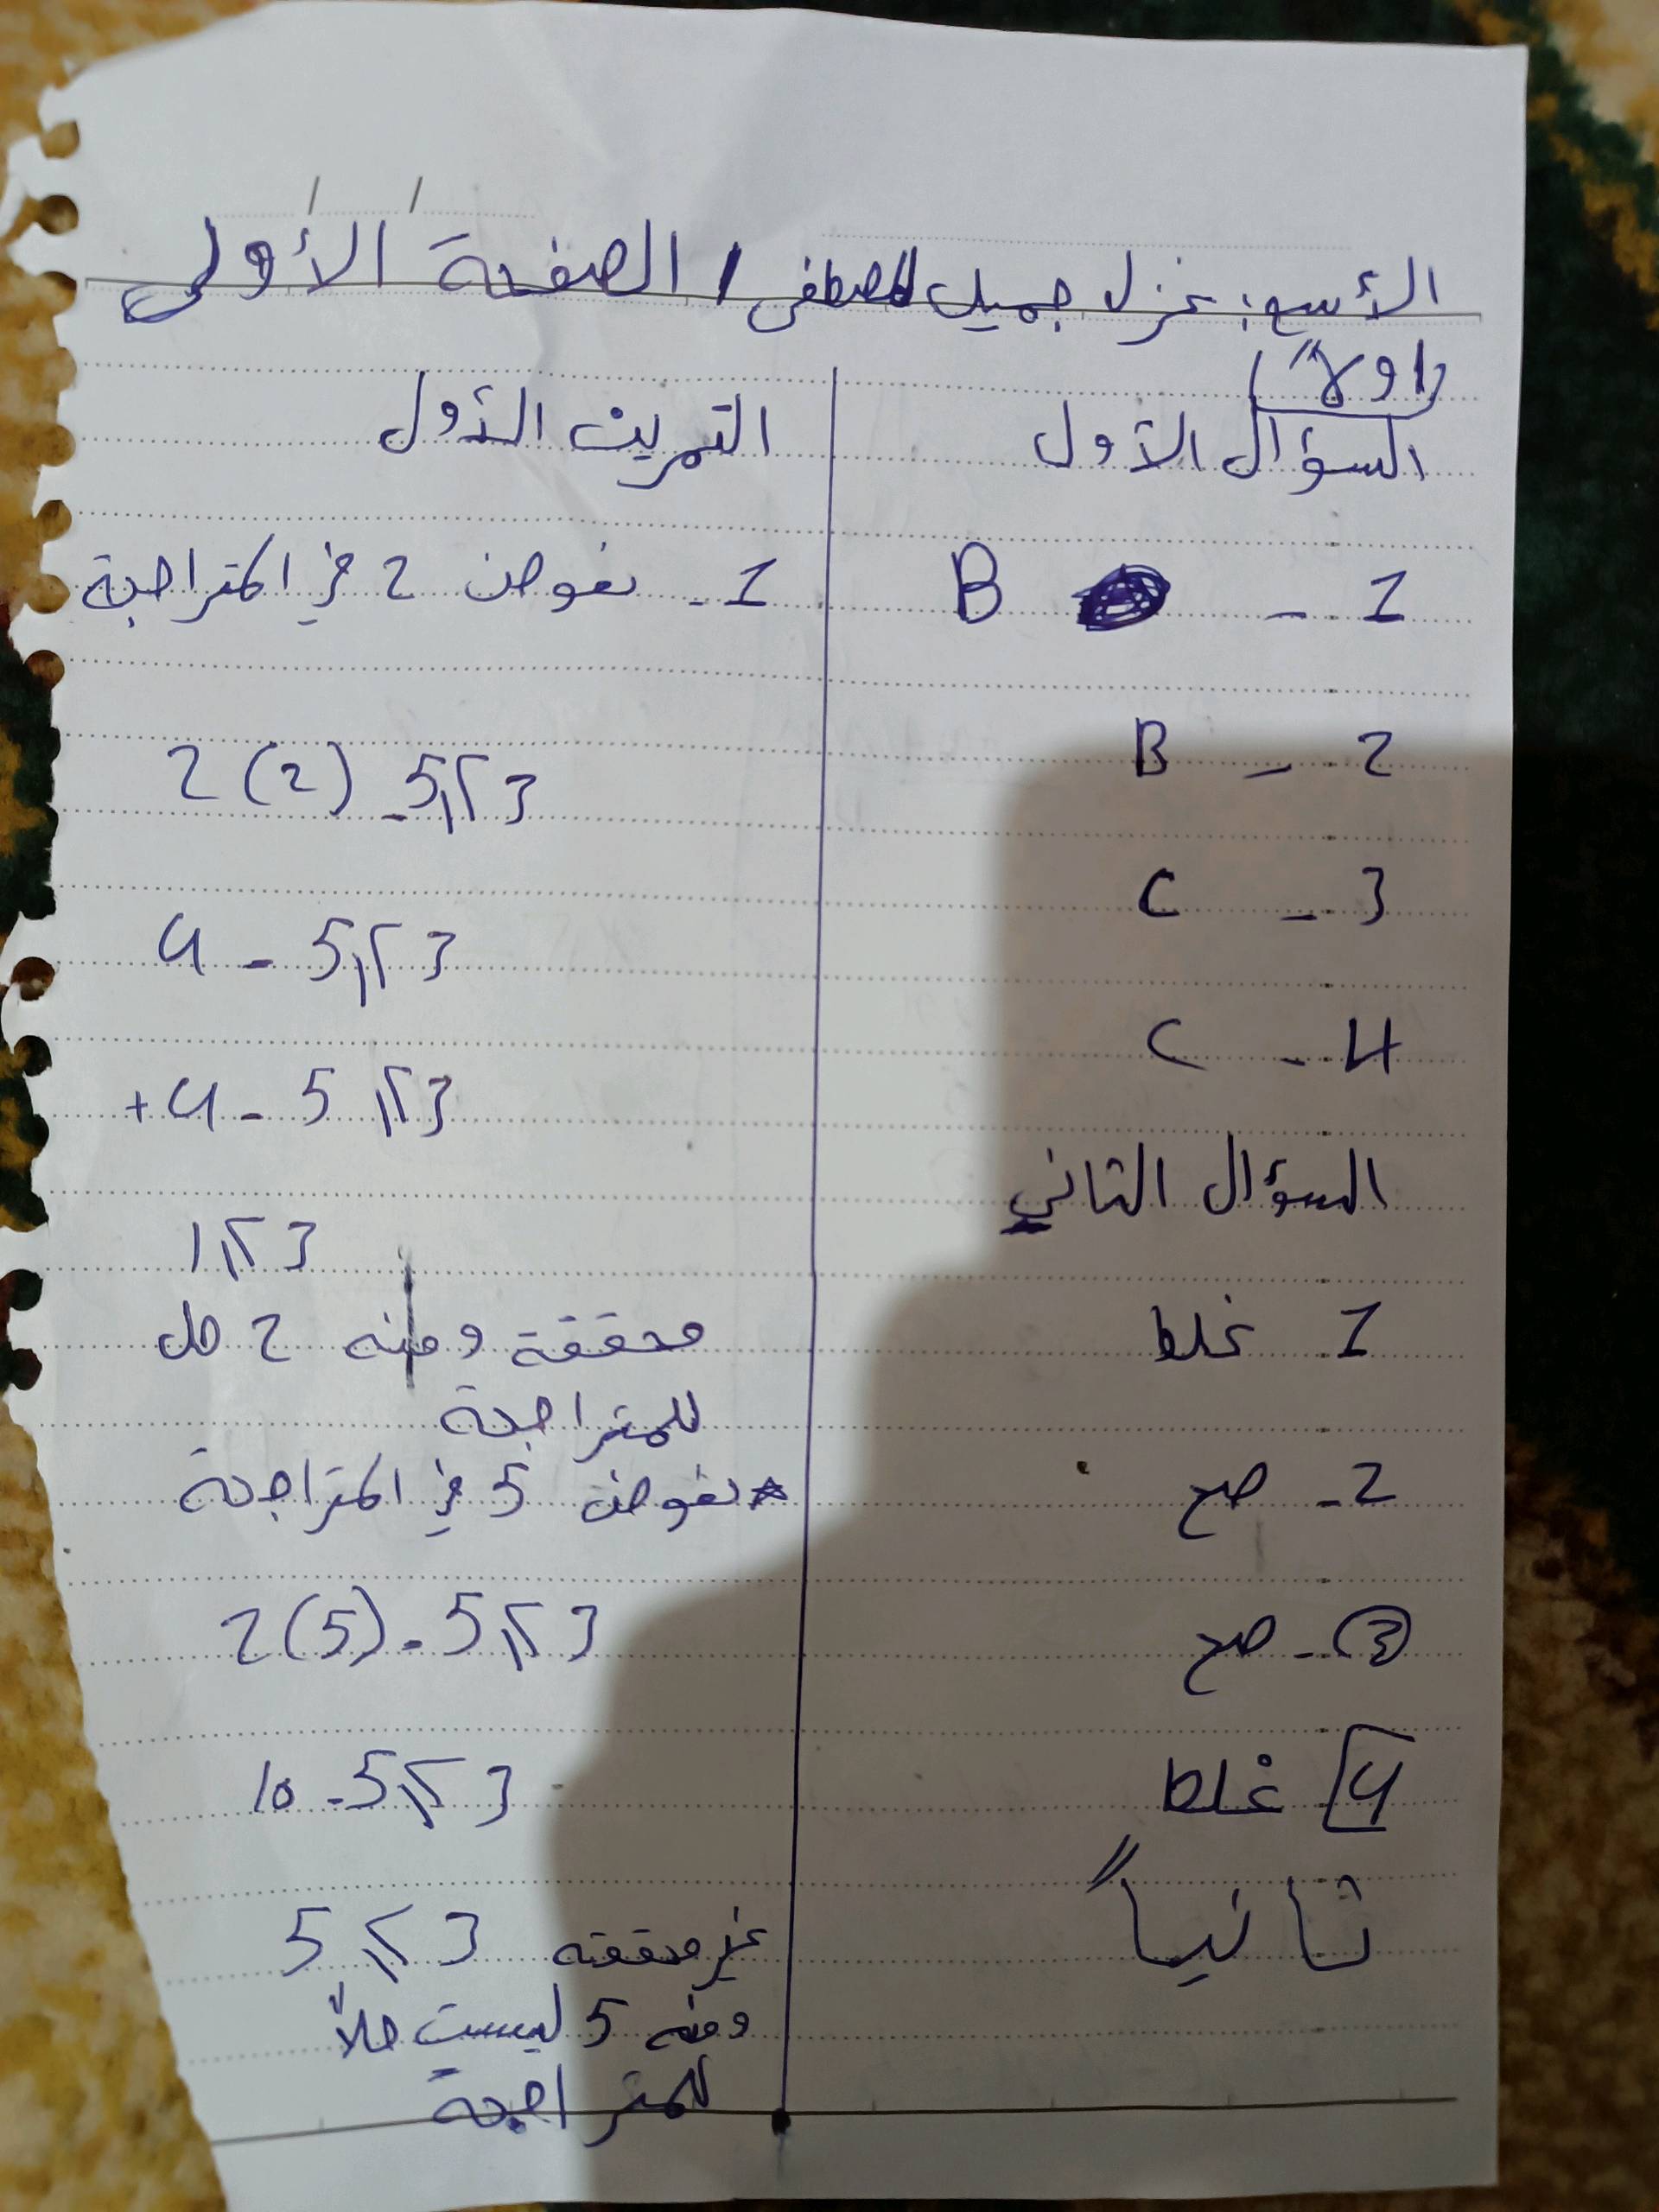 الأسم: غزل جميل المصطفى / الصفحة الأولى
اولاً
السؤال الأول
1 - B
2 - B
3 - C
4 - C
السؤال الثاني
1 غلط
2 - صح
3 - صح
4 غلط
ثانياً
التمرين الأول
1 - نعوض 2 في المتراجحة
2(2) - 5 ≤ 3
4 - 5 ≤ 3
+4 - 5 ≤ 3
1 ≤ 3
محققة ومنه 2 حل
للمتراجحة
* نعوض 5 في المتراجحة
2(5) - 5 ≤ 3
10 - 5 ≤ 3
5 ≤ 3 غير محققة
ومنه 5 ليست حلاً
للمتراجحة